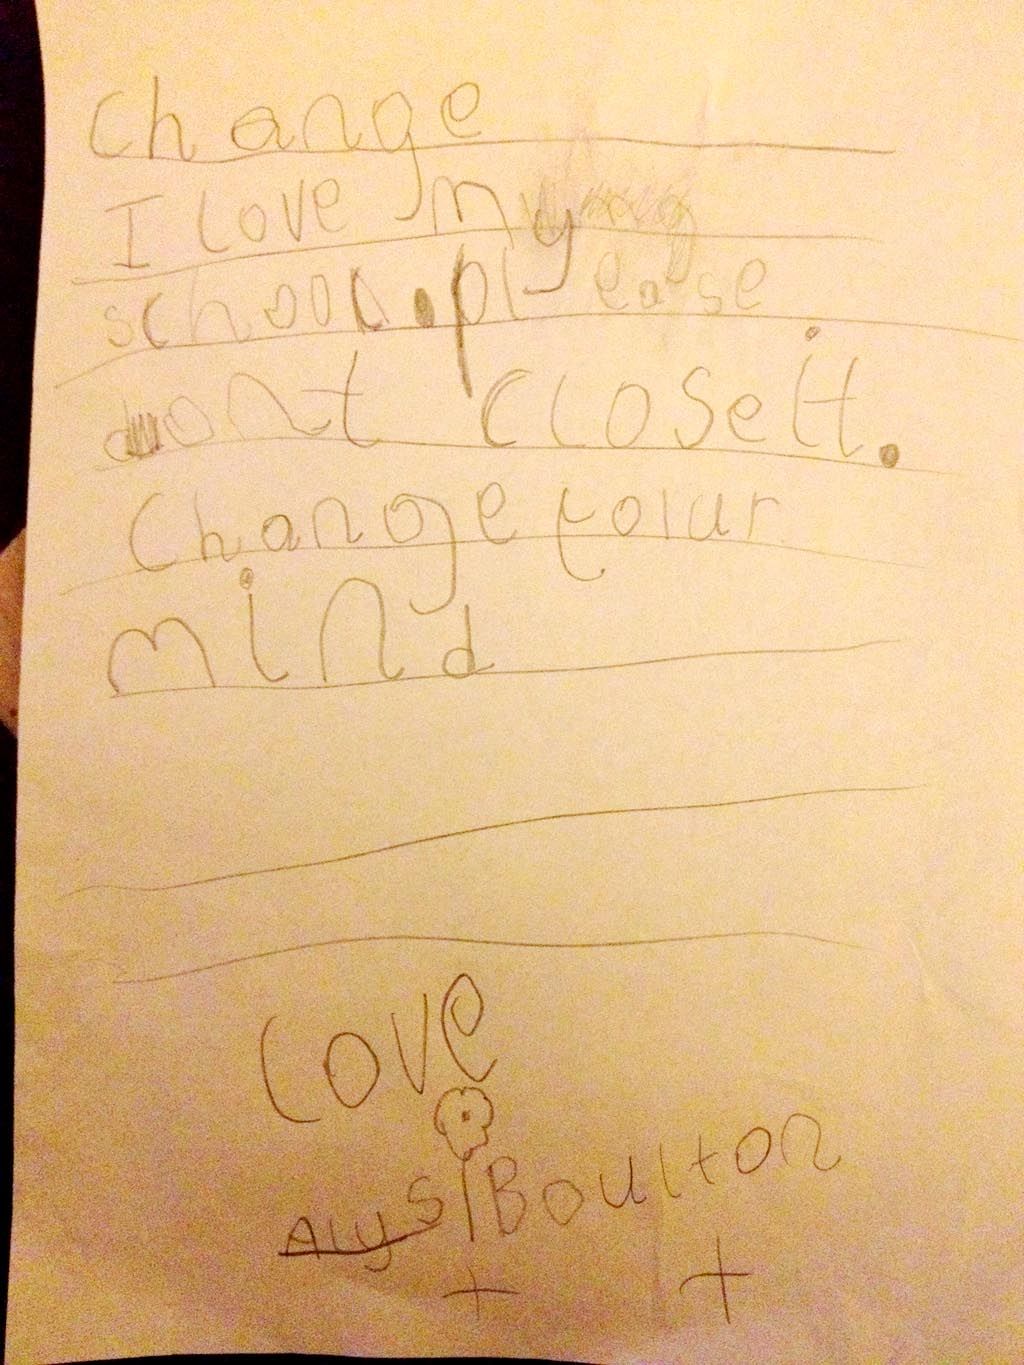 change
I love my
school. please
dont closeit.
change yolur
mind
love
Alys Boulton